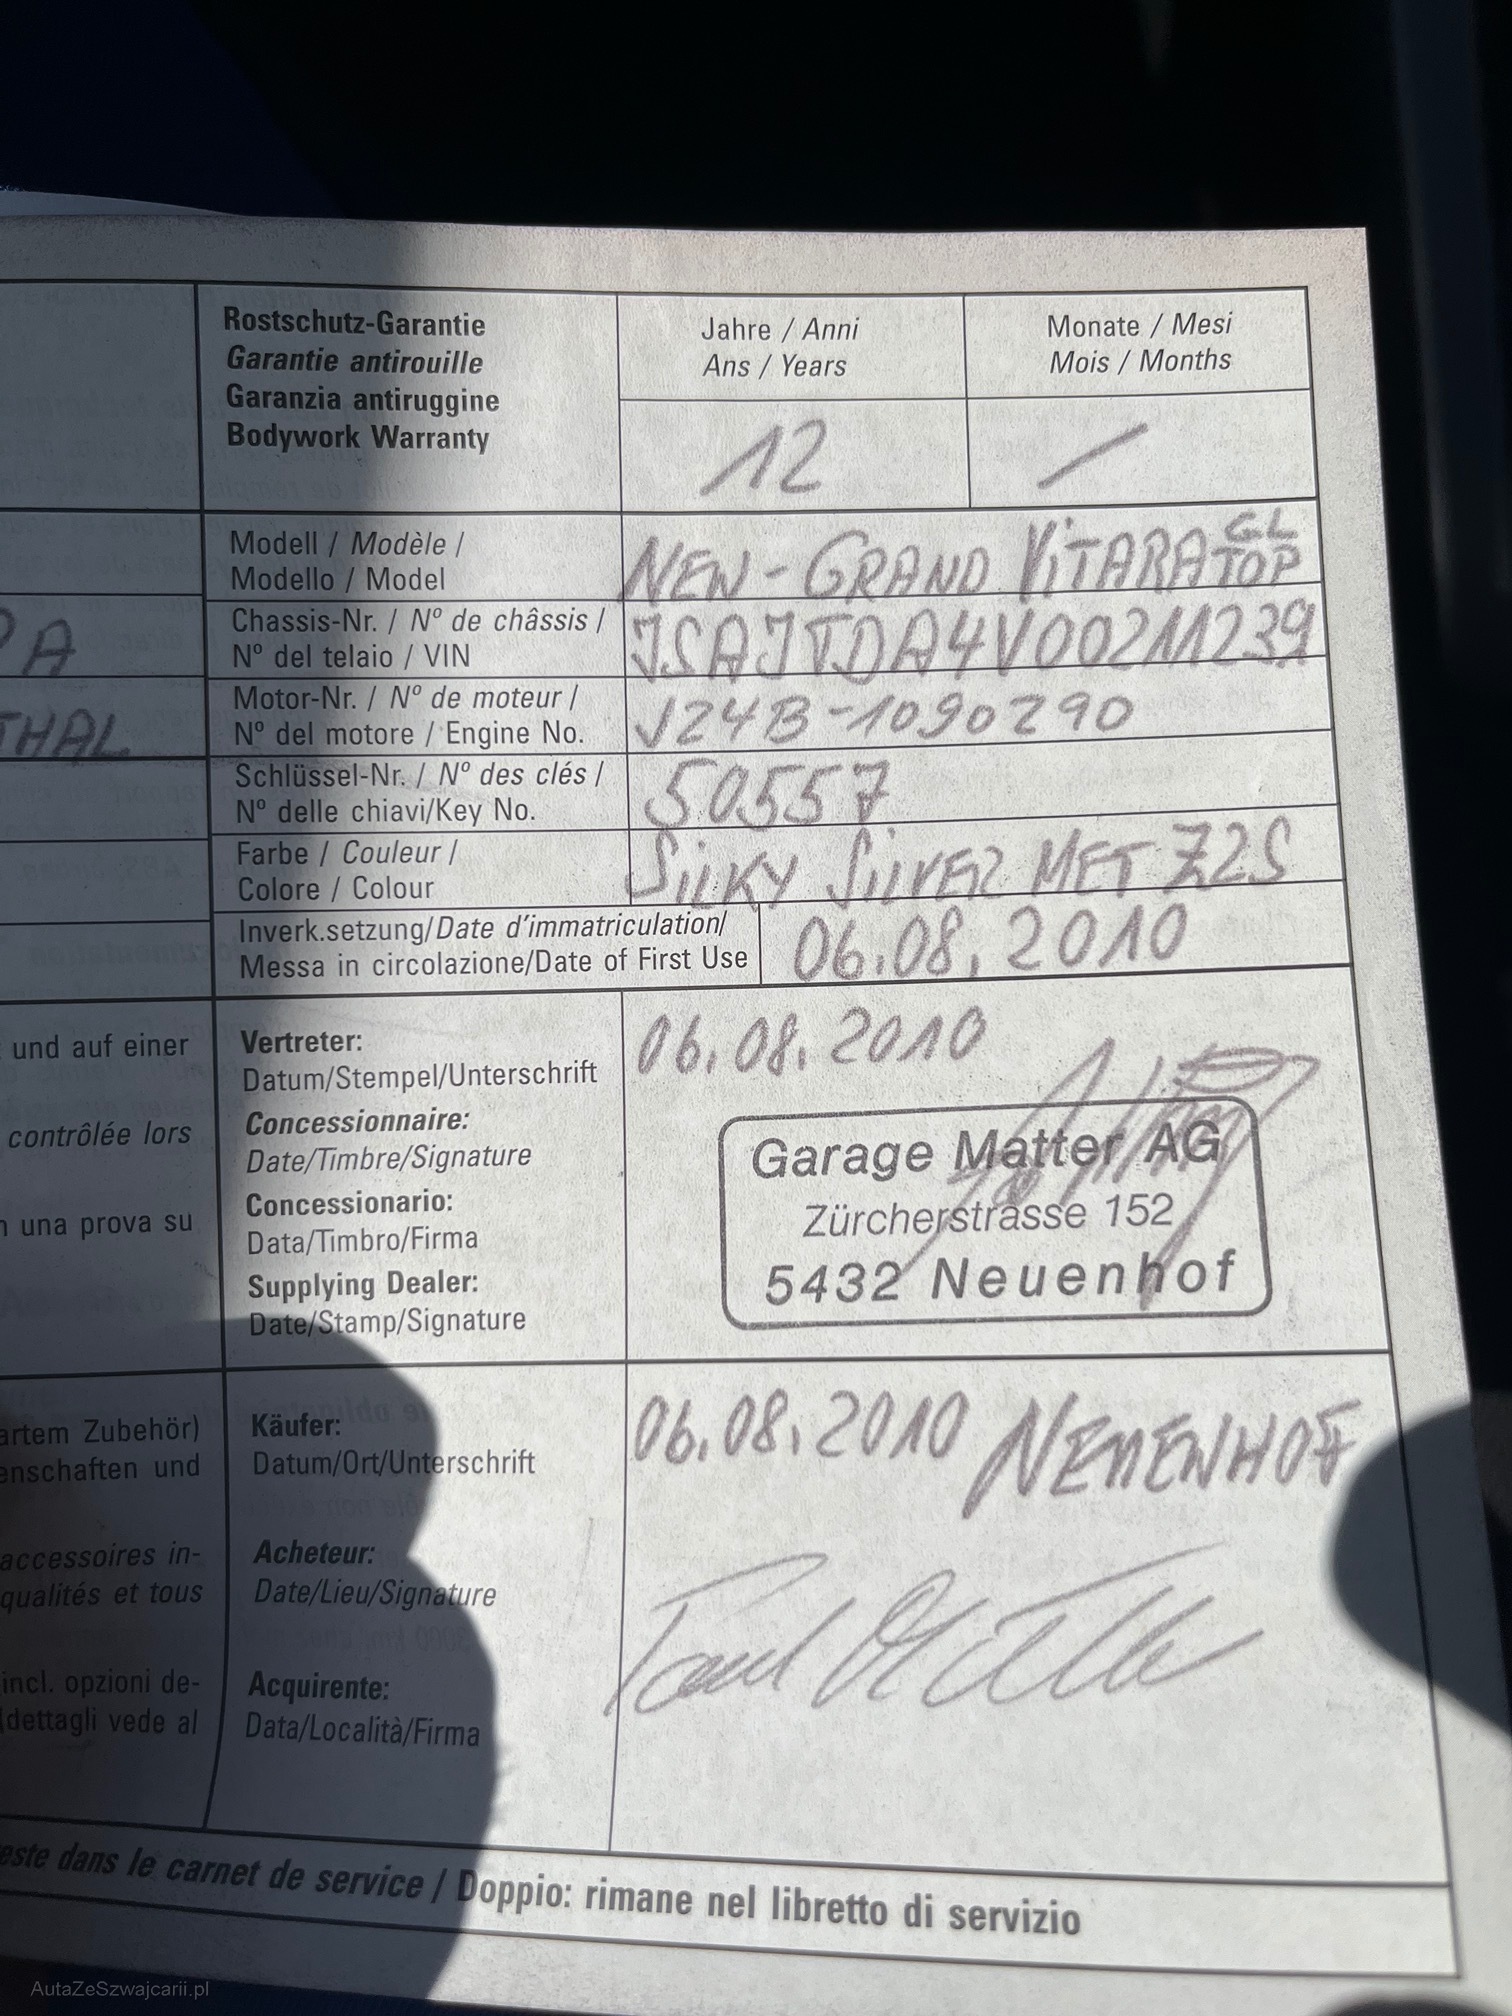 Rostschutz-Garantie
Garantie antirouille
Garanzia antiruggine
Bodywork Warranty
Jahre / Anni
Ans / Years
Monate / Mesi
Mois / Months
12
/
Modell / Modèle /
Modello / Model
NEW-GRAND VITARA GL TOP
Chassis-Nr. / Nº de châssis /
Nº del telaio / VIN
JSAJTDA4V00211239
Motor-Nr. / Nº de moteur /
Nº del motore / Engine No.
J24B-1090290
Schlüssel-Nr. / Nº des clés /
Nº delle chiavi/Key No.
50557
Farbe / Couleur /
Colore / Colour
SILKY SILVER MET Z2S
Inverk.setzung/Date d'immatriculation/
Messa in circolazione/Date of First Use
06.08.2010
THAL
und auf einer
contrôlée lors
una prova su
Vertreter:
Datum/Stempel/Unterschrift
Concessionnaire:
Date/Timbre/Signature
Concessionario:
Data/Timbro/Firma
Supplying Dealer:
Date/Stamp/Signature
06.08.2010
Garage Matter AG
Zürcherstrasse 152
5432 Neuenhof
artem Zubehör)
enschaften und
accessoires in-
qualités et tous
incl. opzioni de-
dettagli vede al
Käufer:
Datum/Ort/Unterschrift
Acheteur:
Date/Lieu/Signature
Acquirente:
Data/Località/Firma
06.08.2010 NEUENHOF
este dans le carnet de service / Doppio: rimane nel libretto di servizio
AutaZeSzwajcarii.pl